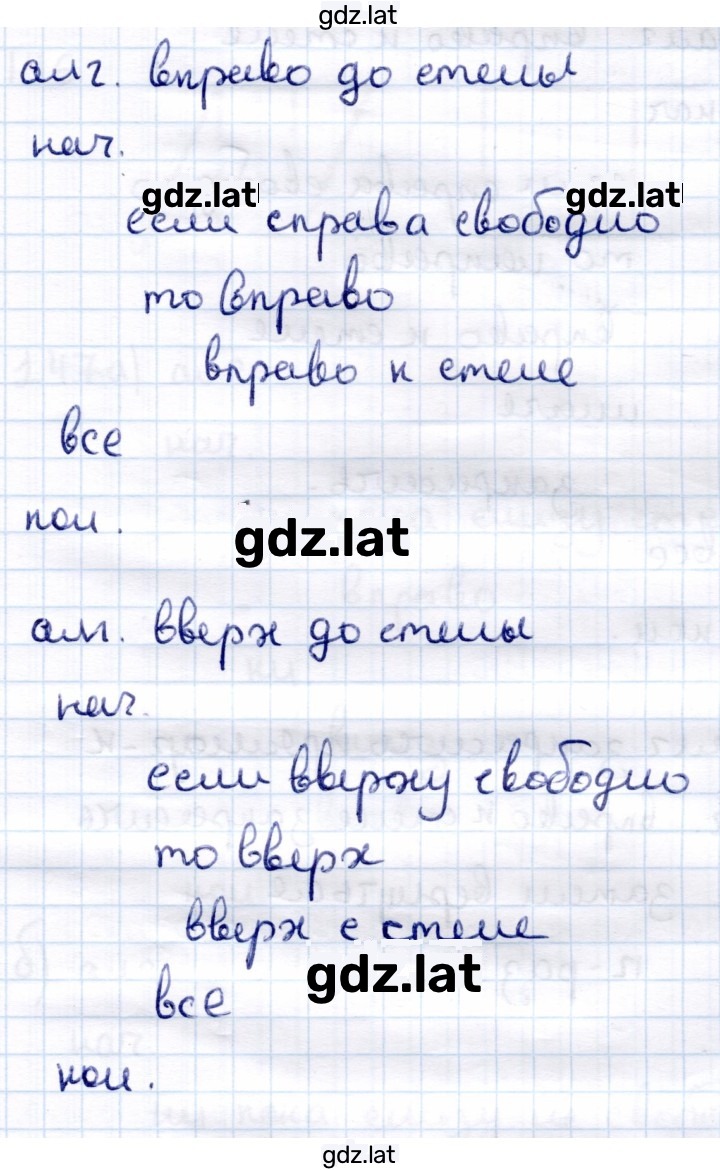 gdz.lat
алг. вправо до стены
нач.
gdz.lat gdz.lat
если справа свободно
то вправо
вправо к стене
все
кон.
gdz.lat
алг. вверх до стены
нач.
если вверху свободно
то вверх
вверх с стене
gdz.lat
все
кон.
gdz.lat